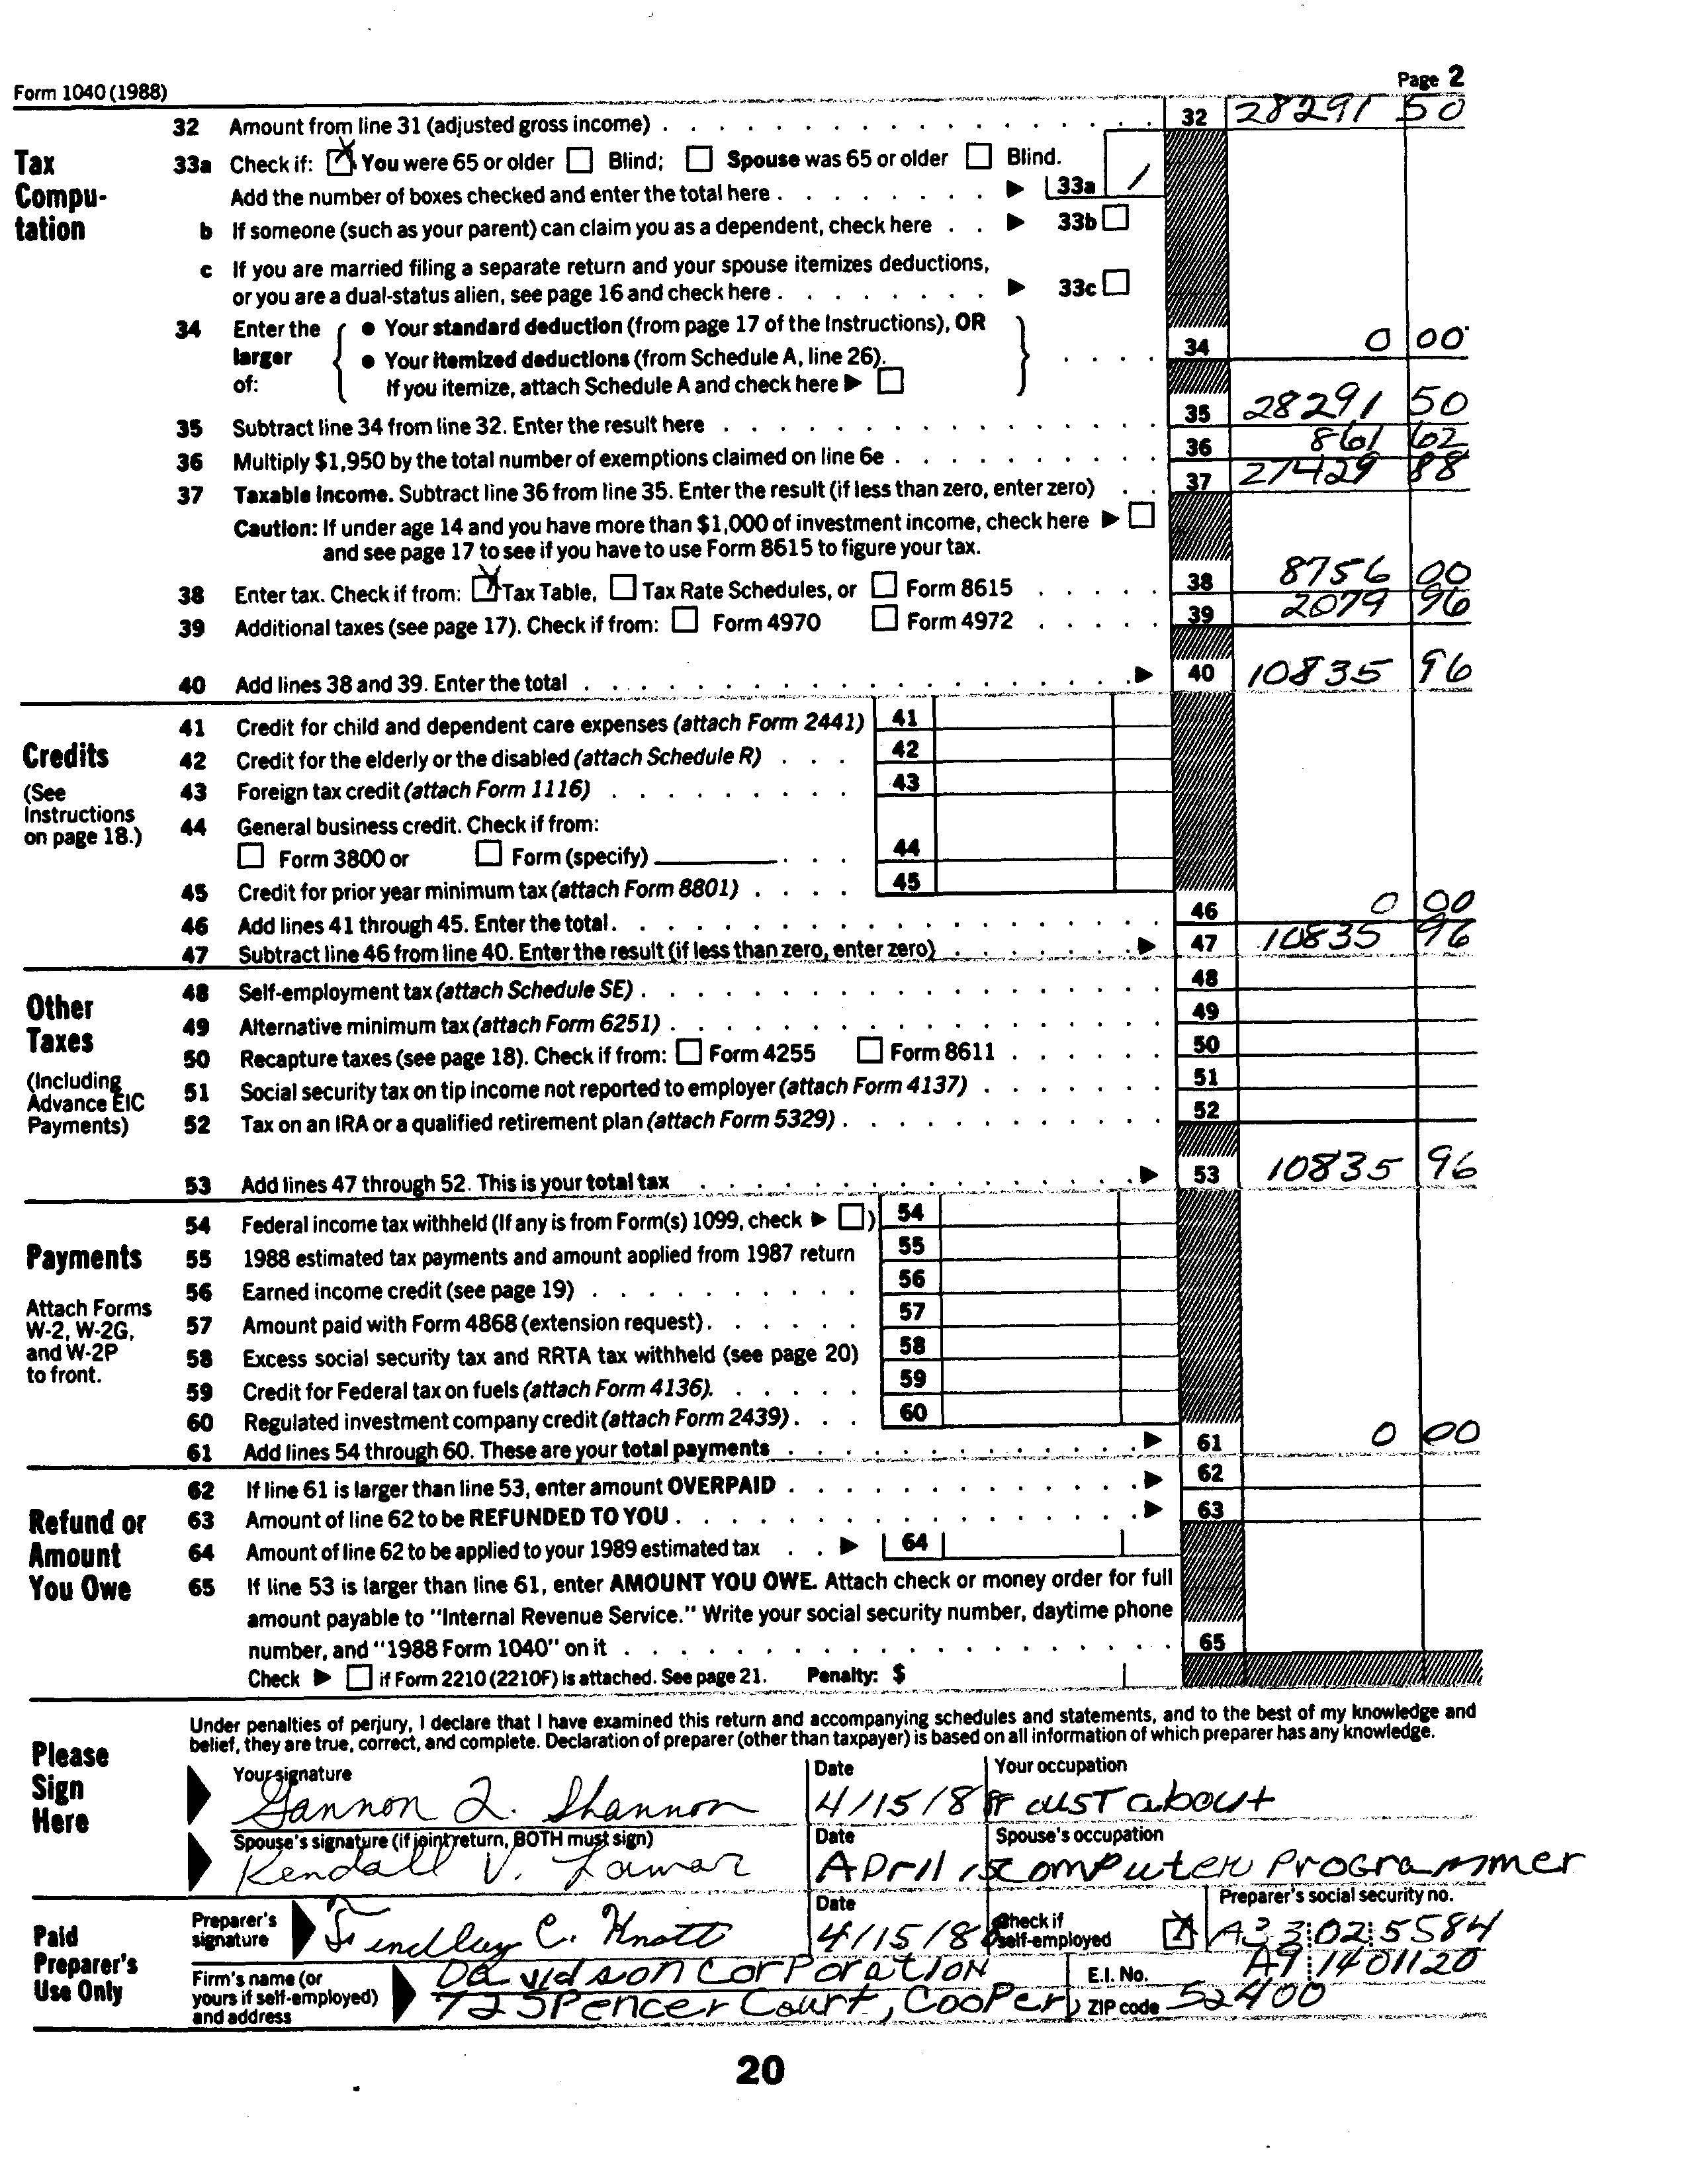 Form 1040 (1988)
Page 2
32 Amount from line 31 (adjusted gross income) 32 28291 50
Tax Compu-tation
33a Check if: You were 65 or older Blind; Spouse was 65 or older Blind.
Add the number of boxes checked and enter the total here 33a 1
b If someone (such as your parent) can claim you as a dependent, check here 33b
c If you are married filing a separate return and your spouse itemizes deductions,
or you are a dual-status alien, see page 16 and check here 33c
34 Enter the larger of: { • Your standard deduction (from page 17 of the Instructions), OR
• Your itemized deductions (from Schedule A, line 26).
If you itemize, attach Schedule A and check here } 34 0 00
35 Subtract line 34 from line 32. Enter the result here 35 28291 50
36 Multiply $1,950 by the total number of exemptions claimed on line 6e 36 861 62
37 Taxable income. Subtract line 36 from line 35. Enter the result (if less than zero, enter zero) 37 27429 88
Caution: If under age 14 and you have more than $1,000 of investment income, check here
and see page 17 to see if you have to use Form 8615 to figure your tax.
38 Enter tax. Check if from: Tax Table, Tax Rate Schedules, or Form 8615 38 8756 00
39 Additional taxes (see page 17). Check if from: Form 4970 Form 4972 39 2079 96
40 Add lines 38 and 39. Enter the total 40 10835 96
Credits
(See Instructions on page 18.)
41 Credit for child and dependent care expenses (attach Form 2441) 41
42 Credit for the elderly or the disabled (attach Schedule R) 42
43 Foreign tax credit (attach Form 1116) 43
44 General business credit. Check if from:
Form 3800 or Form (specify) 44
45 Credit for prior year minimum tax (attach Form 8801) 45
46 Add lines 41 through 45. Enter the total 46 0 00
47 Subtract line 46 from line 40. Enter the result (if less than zero, enter zero) 47 10835 96
Other Taxes
(Including Advance EIC Payments)
48 Self-employment tax (attach Schedule SE) 48
49 Alternative minimum tax (attach Form 6251) 49
50 Recapture taxes (see page 18). Check if from: Form 4255 Form 8611 50
51 Social security tax on tip income not reported to employer (attach Form 4137) 51
52 Tax on an IRA or a qualified retirement plan (attach Form 5329) 52
53 Add lines 47 through 52. This is your total tax 53 10835 96
Payments
Attach Forms W-2, W-2G, and W-2P to front.
54 Federal income tax withheld (If any is from Form(s) 1099, check ) 54
55 1988 estimated tax payments and amount applied from 1987 return 55
56 Earned income credit (see page 19) 56
57 Amount paid with Form 4868 (extension request) 57
58 Excess social security tax and RRTA tax withheld (see page 20) 58
59 Credit for Federal tax on fuels (attach Form 4136) 59
60 Regulated investment company credit (attach Form 2439) 60
61 Add lines 54 through 60. These are your total payments 61 0 00
Refund or Amount You Owe
62 If line 61 is larger than line 53, enter amount OVERPAID 62
63 Amount of line 62 to be REFUNDED TO YOU 63
64 Amount of line 62 to be applied to your 1989 estimated tax 64
65 If line 53 is larger than line 61, enter AMOUNT YOU OWE. Attach check or money order for full
amount payable to "Internal Revenue Service." Write your social security number, daytime phone
number, and "1988 Form 1040" on it 65
Check if Form 2210 (2210F) is attached. See page 21. Penalty: $
Please Sign Here
Under penalties of perjury, I declare that I have examined this return and accompanying schedules and statements, and to the best of my knowledge and
belief, they are true, correct, and complete. Declaration of preparer (other than taxpayer) is based on all information of which preparer has any knowledge.
Your signature Date Your occupation
Gannon Q. Shannon 4/15/88 about
Spouse's signature (if joint return, BOTH must sign) Date Spouse's occupation
Kendall V. Lamar April 15 computer Programmer
Paid Preparer's Use Only
Preparer's signature Date Check if self-employed Preparer's social security no.
Findley C. Knott 4/15/88 X A33 02 5584
Firm's name (or yours if self-employed) and address
Davidson Corporation E.I. No. A9 1401120
72 Spencer Court, Cooper, ZIP code 52400
20